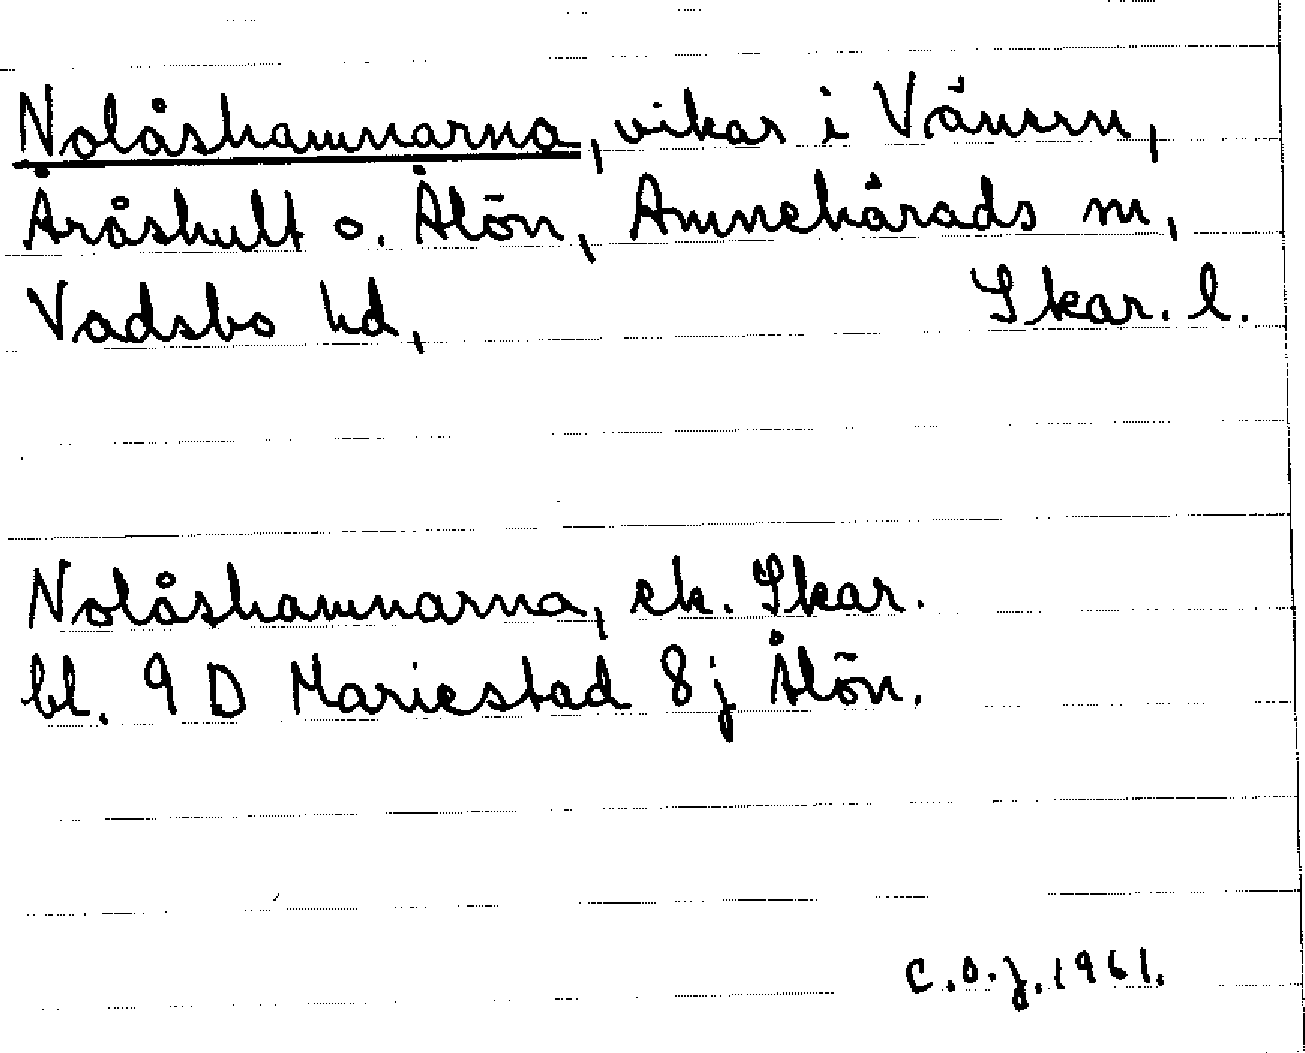 Nolåshamnarna, vikar i Vänern,
Åråshult o. Ålön, Amnehärads sn,
Vadsbo hd, Skar. l.
Nolåshamnarna, ek. Skar.
bl. 9 D Mariestad 8 j Ålön.
C.O.J. 1961.